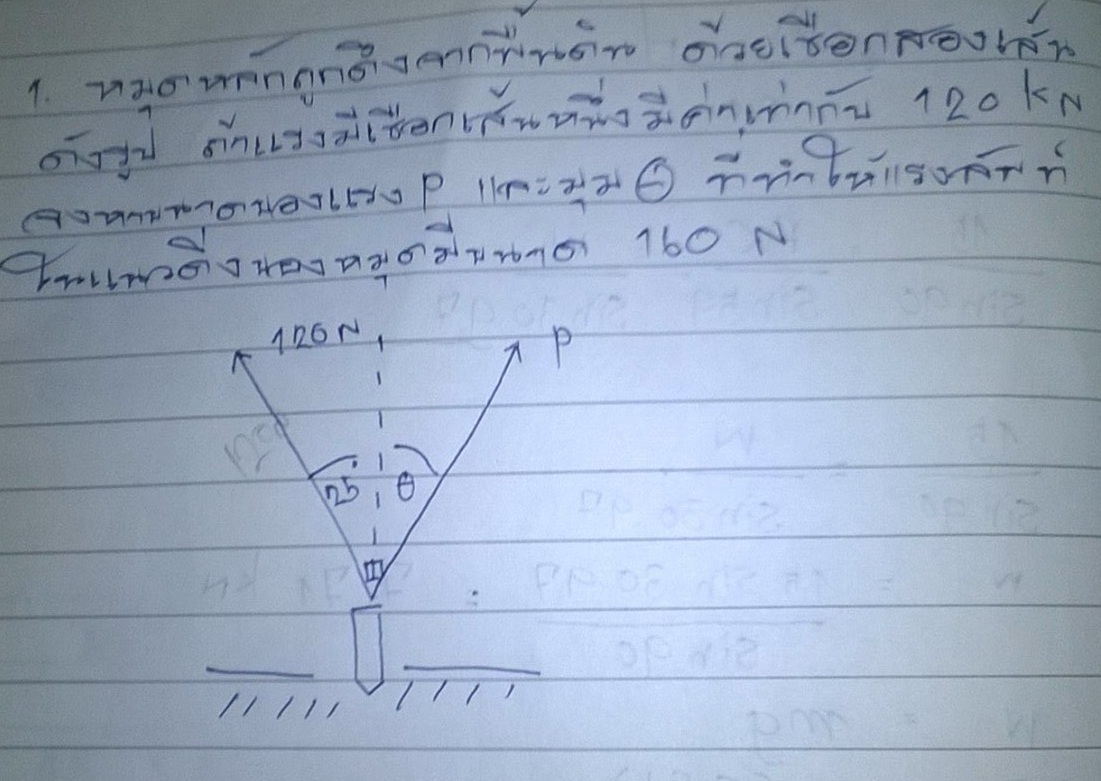 1. หมุดหลักถูกดึงจากพื้นดิน ด้วยเชือกสองเส้น
ดังรูป ถ้าแรงมีเชือกเส้นหนึ่งมีค่าเท่ากับ 120 kN
จงหาขนาดของแรง P และมุม θ ที่ทำให้แรงลัพท์
ในแนวดิ่งของหมุดมีขนาด 160 N
120 N P
25 θ